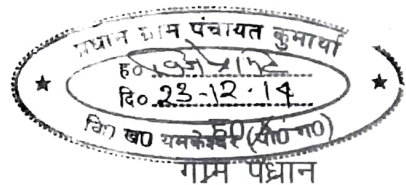 प्रधान ग्राम पंचायत कुमार्था
ह०
दि० 23-12-14
वि० ख० यमकेश्वर (पौ० ग०)
ग्राम प्रधान